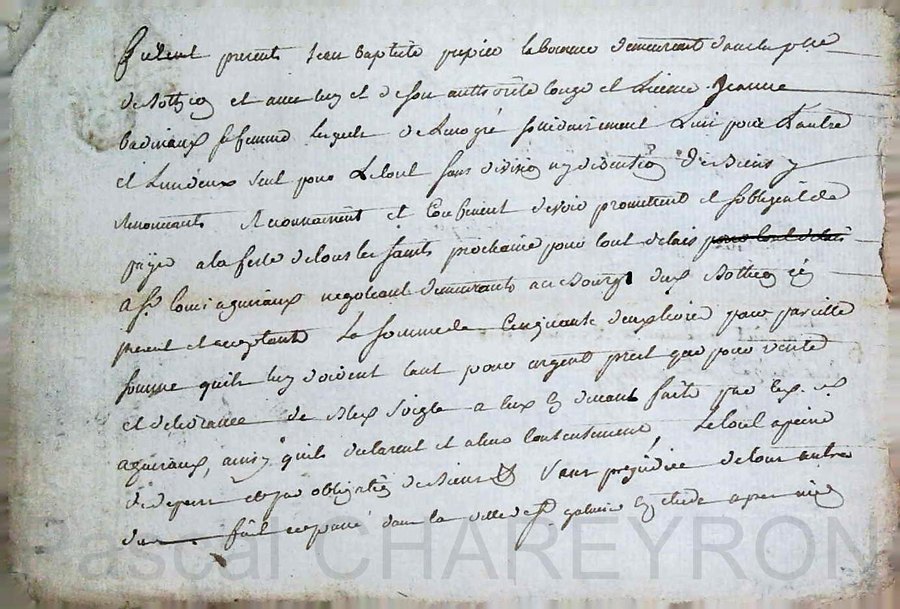 furent presents Jean Baptiste papier laboureur demeurant dans la psse
de Rotheon et avec luy et de son authorité louge et Licence Jeanne
badinaux sa femme Lesquels de Leur gré solidairement L'un pour L'autre
et L'un deux seul pour Letout sans division ny discution de biens y
Renonceants Reconnaissent et Confessent devoir promettent et sobligent de
payer a la feste de tous les saints prochaine pour tout delais pour tout delais
a sr. Louis aguiraux negotiant demeurants au Bourg dud Rotheon icy
present et acceptant La somme de Cinquante deux livres pour pareille
somme quils luy doivent tant pour argent prest que pour vente
et delivrance de bled soigle a Eux cy devant faite par led. sr.
aguiraux, ainsy quils declarent et a leur contentement, Le tout a peine
de depens et par obligation de biens & sans prejudice de tous autres
dus fait et passé dans la ville de st. galmier En etude apres midy
Pascal CHAREYRON